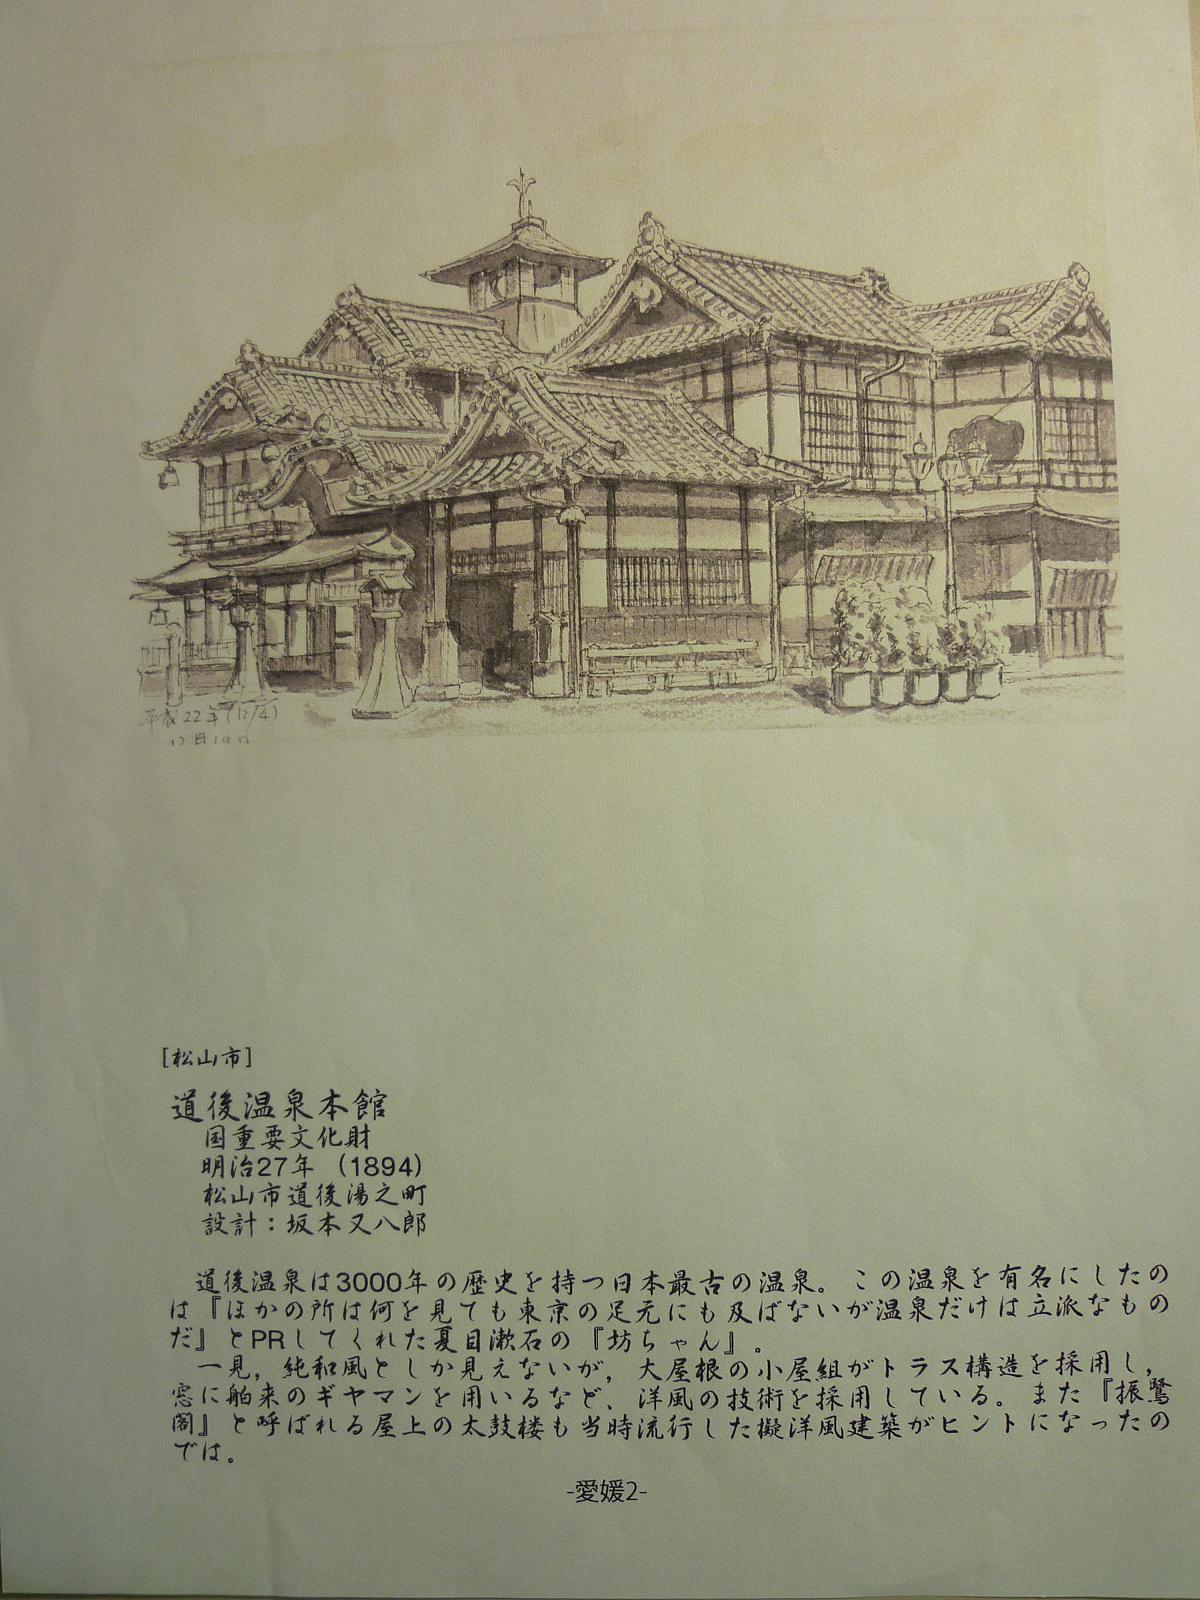 平成22年(12/4)
[松山市]
道後温泉本館
国重要文化財
明治27年 (1894)
松山市道後湯之町
設計：坂本又八郎
道後温泉は3000年の歴史を持つ日本最古の温泉。この温泉を有名にしたの
は『ほかの所は何を見ても東京の足元にも及ばないが温泉だけは立派なもの
だ』とPRしてくれた夏目漱石の『坊ちゃん』。
一見，純和風としか見えないが，大屋根の小屋組がトラス構造を採用し，
窓に舶来のギヤマンを用いるなど、洋風の技術を採用している。また『振鷺
閣』と呼ばれる屋上の太鼓楼も当時流行した擬洋風建築がヒントになったの
では。
-愛媛2-